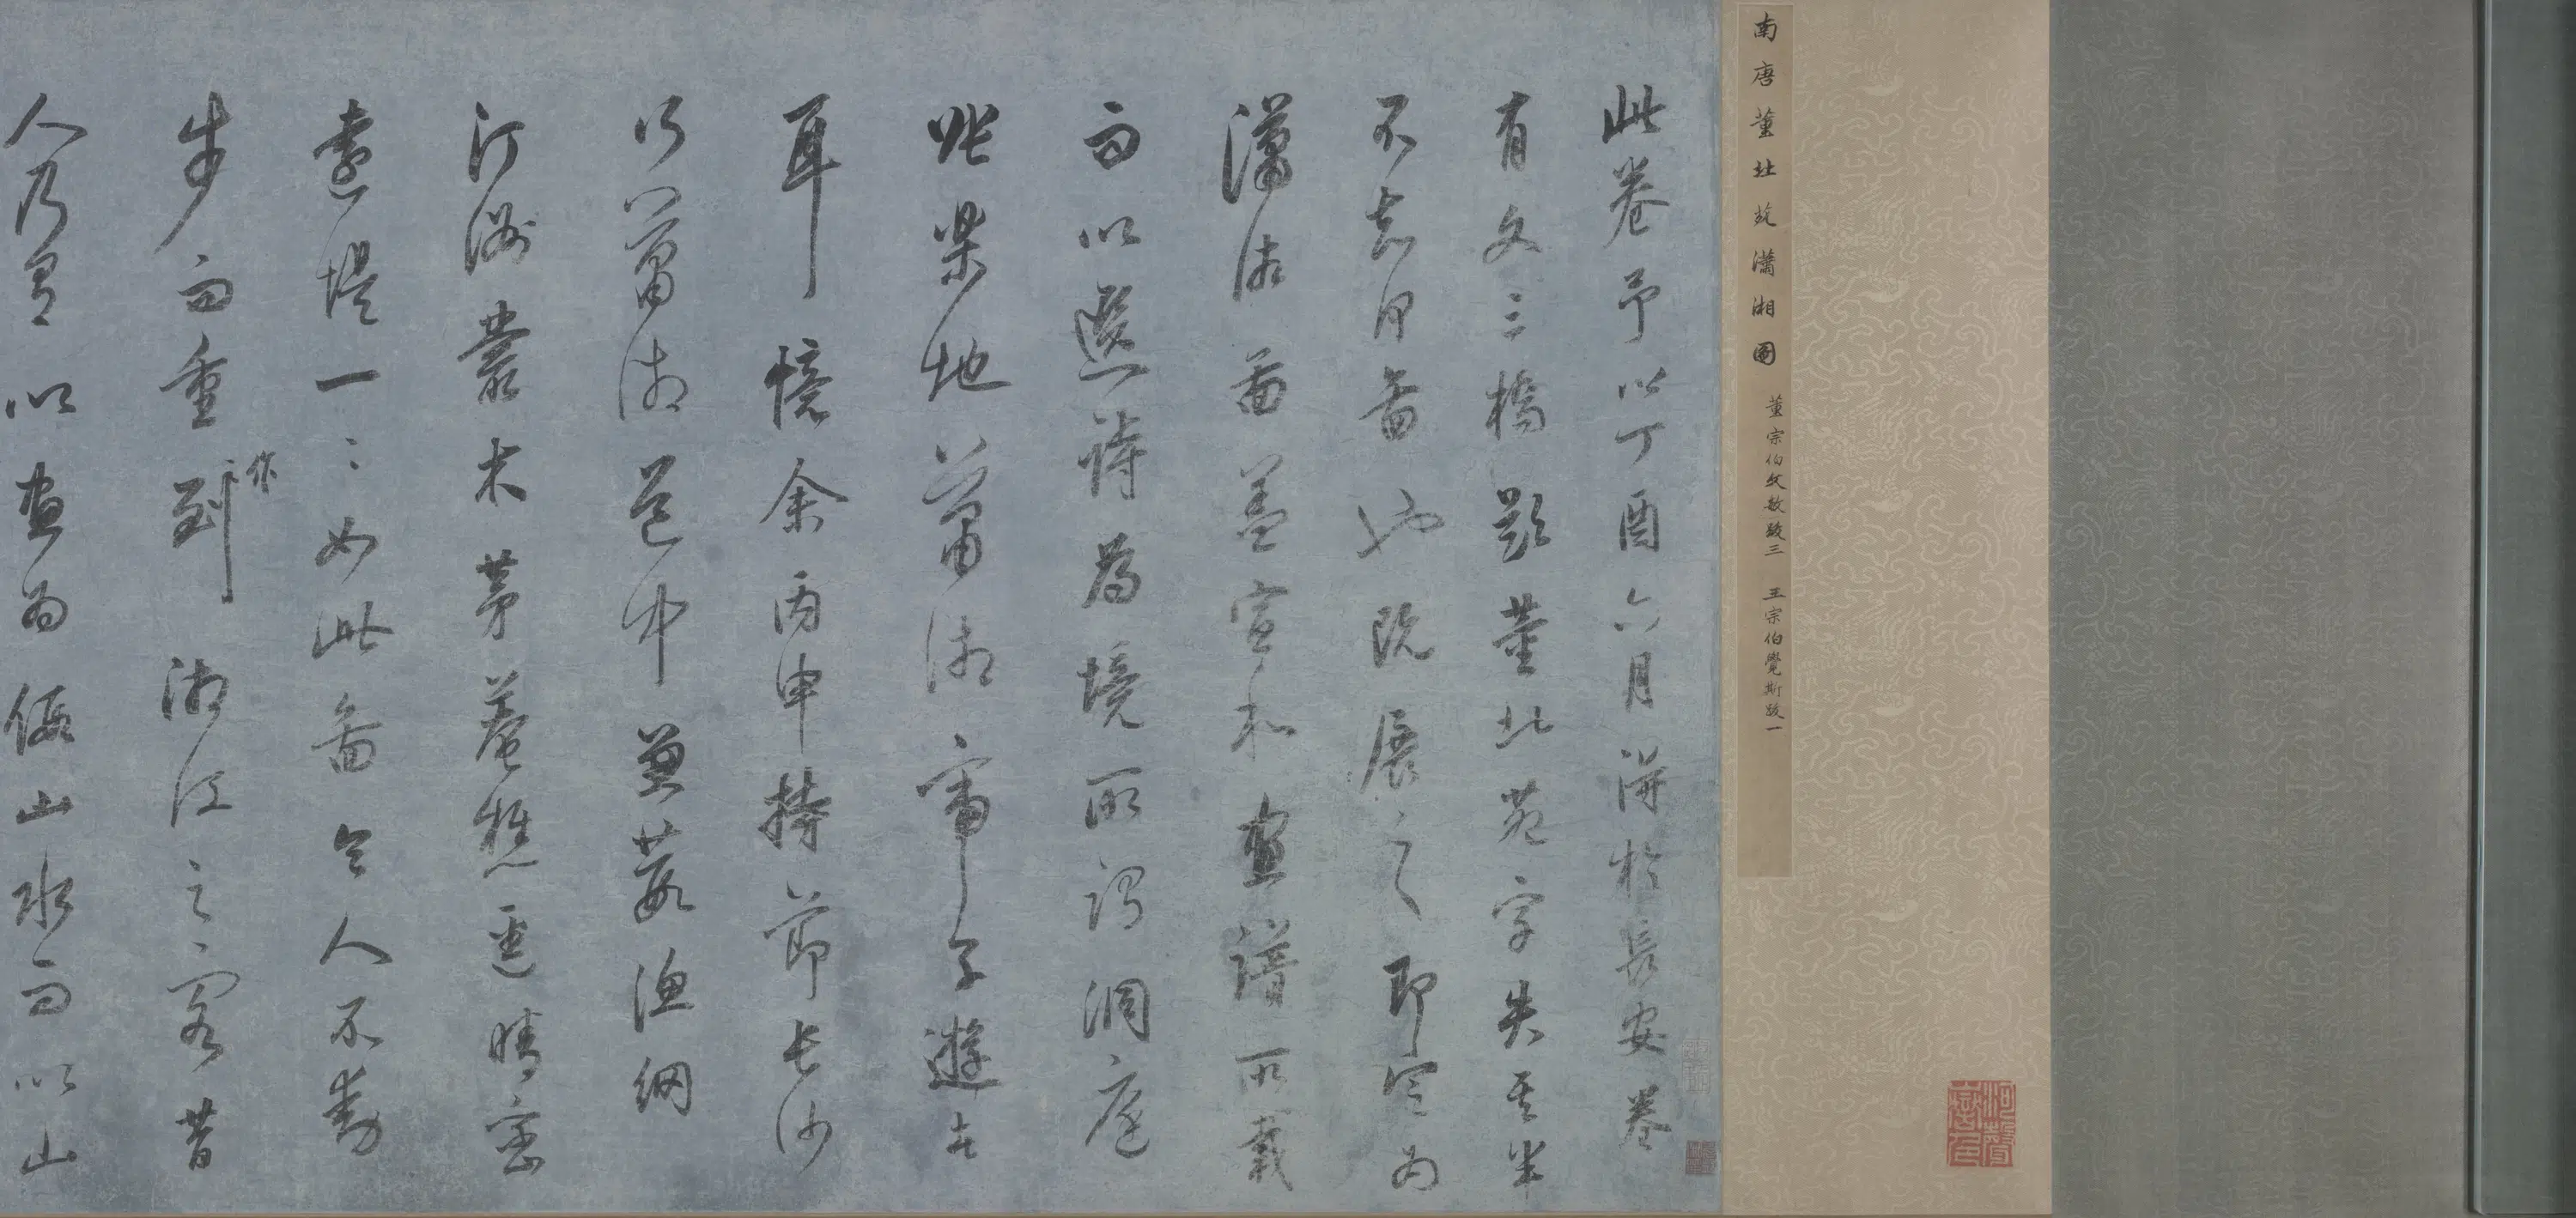 南唐董北苑瀟湘圖 董宗伯文敏跋三 王宗伯覺斯跋一
此卷予以丁酉六月得於長安卷
有文三橋題董北苑字失其半
不知何啚也既展之即定為
瀟湘啚蓋宣和畫譜所載
而以選詩為境所謂洞庭
張樂地瀟湘帝子遊者
耳憶余丙申持節長沙
行瀟湘道中兼葭漁網
汀洲叢木茅菴樵逕晴巒
遠堤一一如此啚令人不動
步而重到作湘江之客昔
人乃有以畫為假山水而以山
河聲嶽色